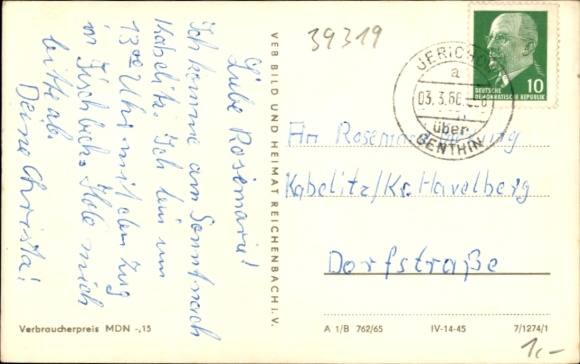 Liebe Rosemarie!
Ich komme am Sonnt. nach
Kabelitz. Ich bin um
13 00 Uhr mit dem Zug
in Fischbeck. Hole mich
bitte ab.
Deine Christa!
Verbraucherpreis MDN -,15
VEB BILD UND HEIMAT REICHENBACH I. V.
39319
JERICHOW
a
03.3.66
über
GENTHIN
DEUTSCHE
DEMOKRATISCHE REPUBLIK
10
An
Kabelitz/Kr. Havelberg
Dorfstraße
A 1/B 762/65 IV-14-45 7/1274/1
1,-